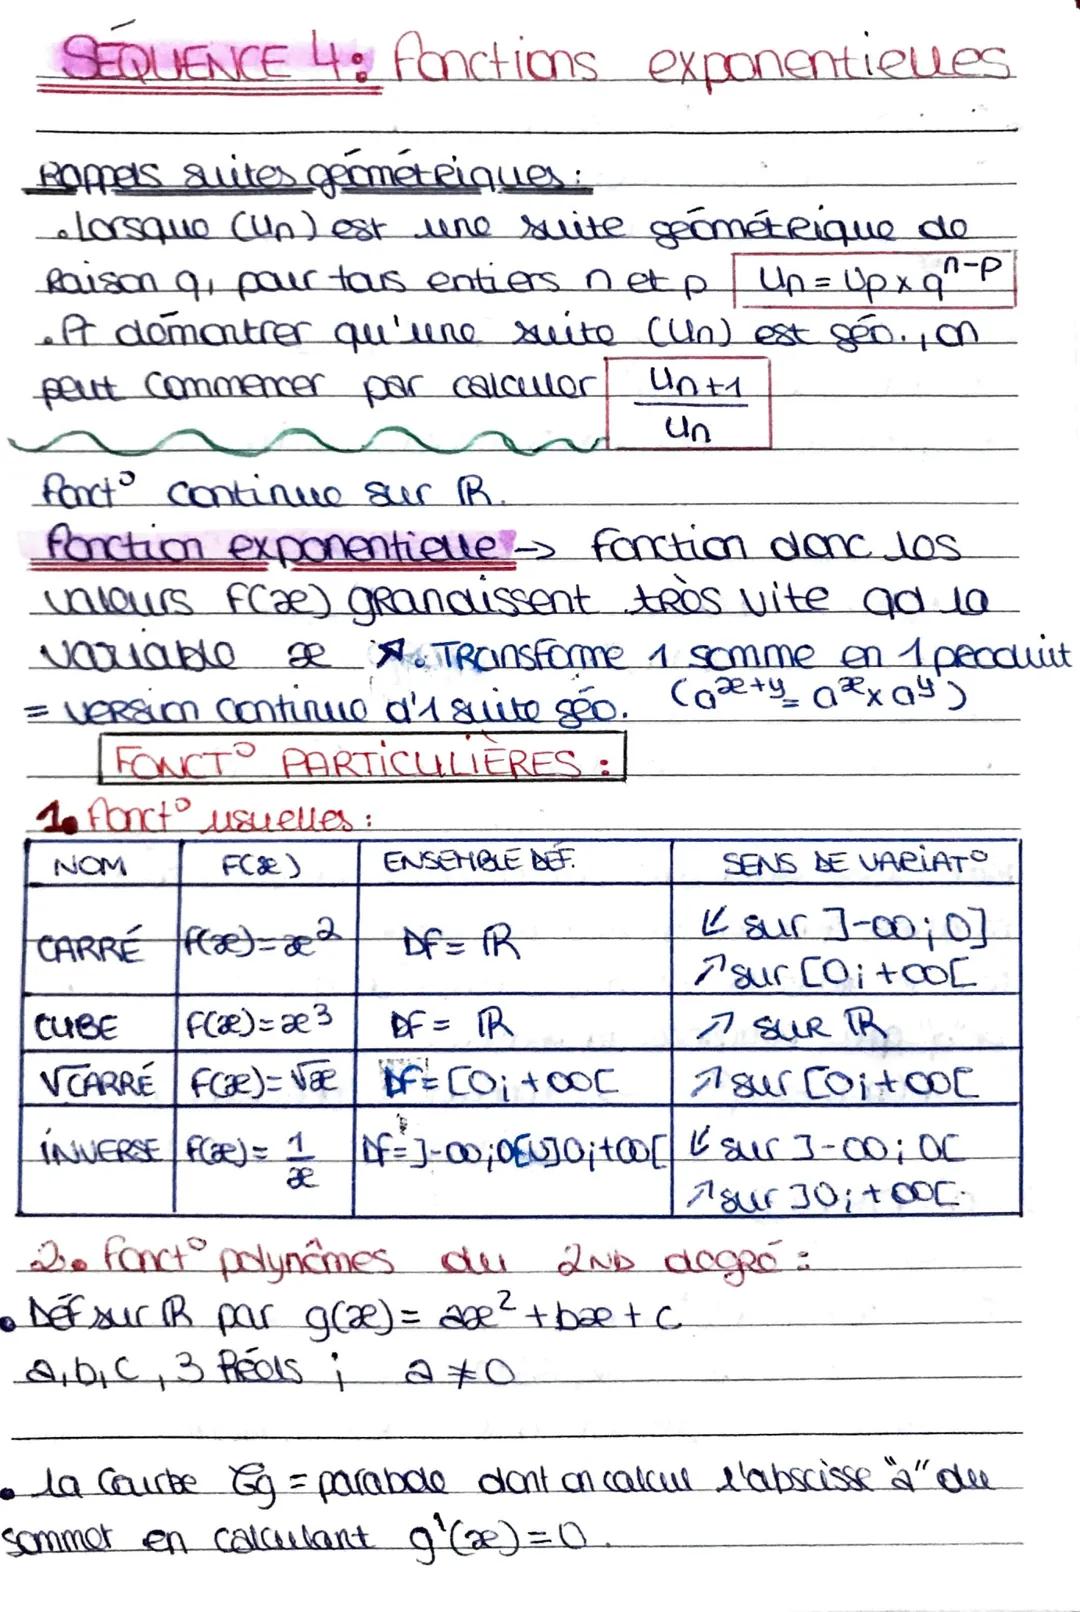 SÉQUENCE 4: fonctions exponentielles
Rappels suites géométriques :
• Lorsque (Un) est une suite géométrique de
Raison q, pour tous entiers n et p Un = Up x q^n-p
• Pr démontrer qu'une suite (Un) est géo., on
peut commencer par calculer Un+1 / Un
fonct° continue sur ℝ.
fonction exponentielle → fonction donc les
valeurs f(x) grandissent très vite qd la
variable x ↗. • TRansforme 1 somme en 1 produit
= version continue d'1 suite géo. (a^x+y = a^x x a^y)
FONCT° PARTICULIÈRES :
1. fonct° usuelles :
NOM F(x) ENSEMBLE DÉF. SENS DE VARIAT°
CARRÉ f(x) = x² Df = ℝ ↙ sur ]-∞; 0]
↗ sur [0; +∞[
CUBE f(x) = x³ Df = ℝ ↗ sur ℝ
√CARRÉ f(x) = √x Df = [0; +∞[ ↗ sur [0; +∞[
INVERSE f(x) = 1/x Df = ]-∞; 0[U]0; +∞[ ↙ sur ]-∞; 0[
↗ sur ]0; +∞[.
2. fonct° polynômes du 2ND degré :
• Déf sur ℝ par g(x) = ax² + bx + c
a, b, c, 3 Réels ; a ≠ 0
• la courbe Cg = parabole dont on calcul l'abscisse "a" du
sommet en calculant g'(x) = 0.